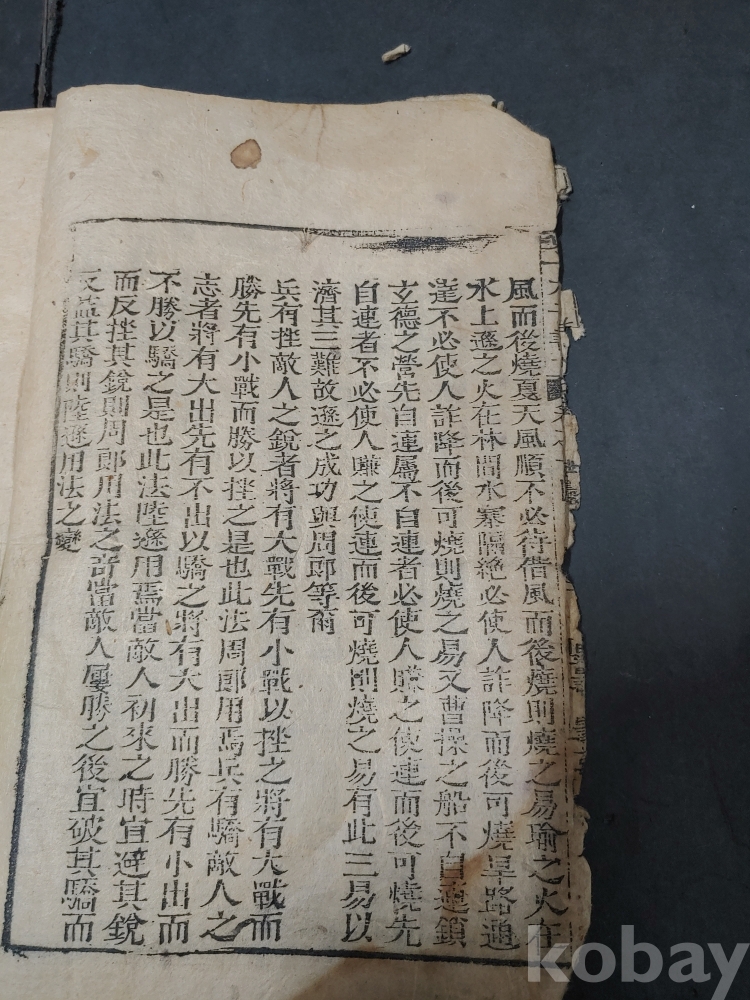 風而後燒夏天風順不必待借風而後燒則燒之易瑜之火在
水上遜之火在林間水寨隔絶必使人詐降而後可燒旱路通
達不必使人詐降而後可燒則燒之易又曹操之船不自連鎖
玄德之營先自連屬不自連者必使人賺之使連而後可燒先
自連者不必使人賺之使連而後可燒則燒之易有此三易以
濟其三難故遜之成功與周郎等爾
兵有挫敵人之銳者將有大戰先有小戰以挫之將有大戰而
勝先有小戰而勝以挫之是也此法周郎用焉兵有驕敵人之
志者將有大出先有不出以驕之將有大出而勝先有小出而
不勝以驕之是也此法陸遜用焉當敵人初來之時宜避其銳
而反挫其銳則周郎用法之竒當敵人屢勝之後宜破其驕而
反益其驕則陸遜用法之變
kobay